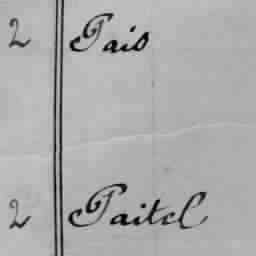 2 Pais
2 Paitel